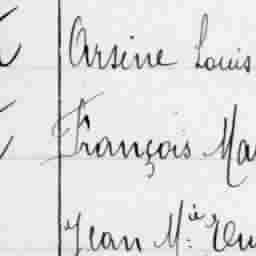 Arsine Louis
François
Jean M.ie